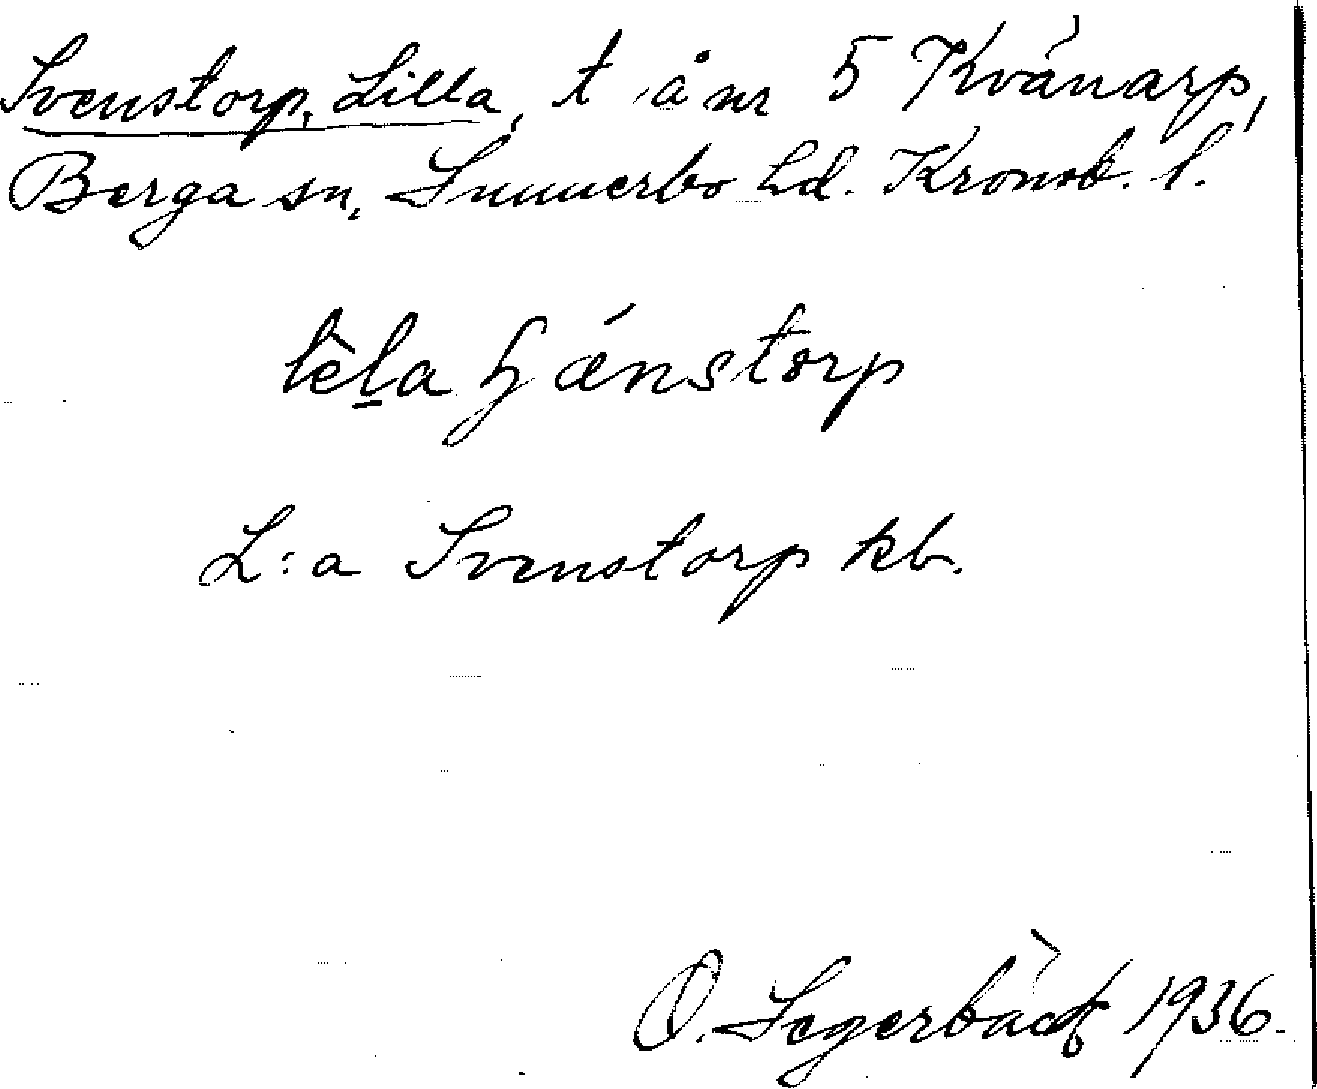 Svenstorp, Lilla, t å nr 5 Kvänarp,
Berga sn, Sunnerbo hd. Kronob. l.
L:a Svenstorp kb.
O. Segerbäck 1936.